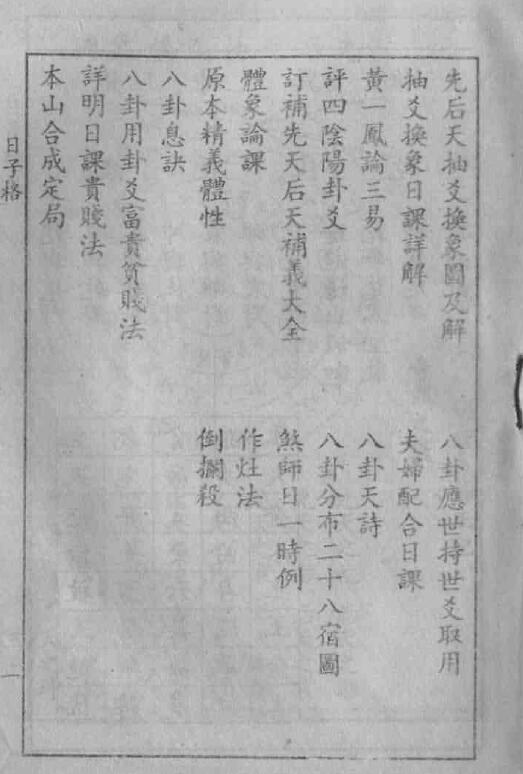 先后天抽爻換象圖及解
八卦應世持世爻取用
抽爻換象日課詳解
夫婦配合日課
黃一鳳論三易
八卦天詩
評四陰陽卦爻
八卦分布二十八宿圖
訂補先天后天補義大全
煞師日一時例
體象論課
作灶法
原本精義體性
倒攔殺
八卦息訣
八卦用卦爻富貴貧賤法
詳明日課貴賤法
本山合成定局
日子格
一